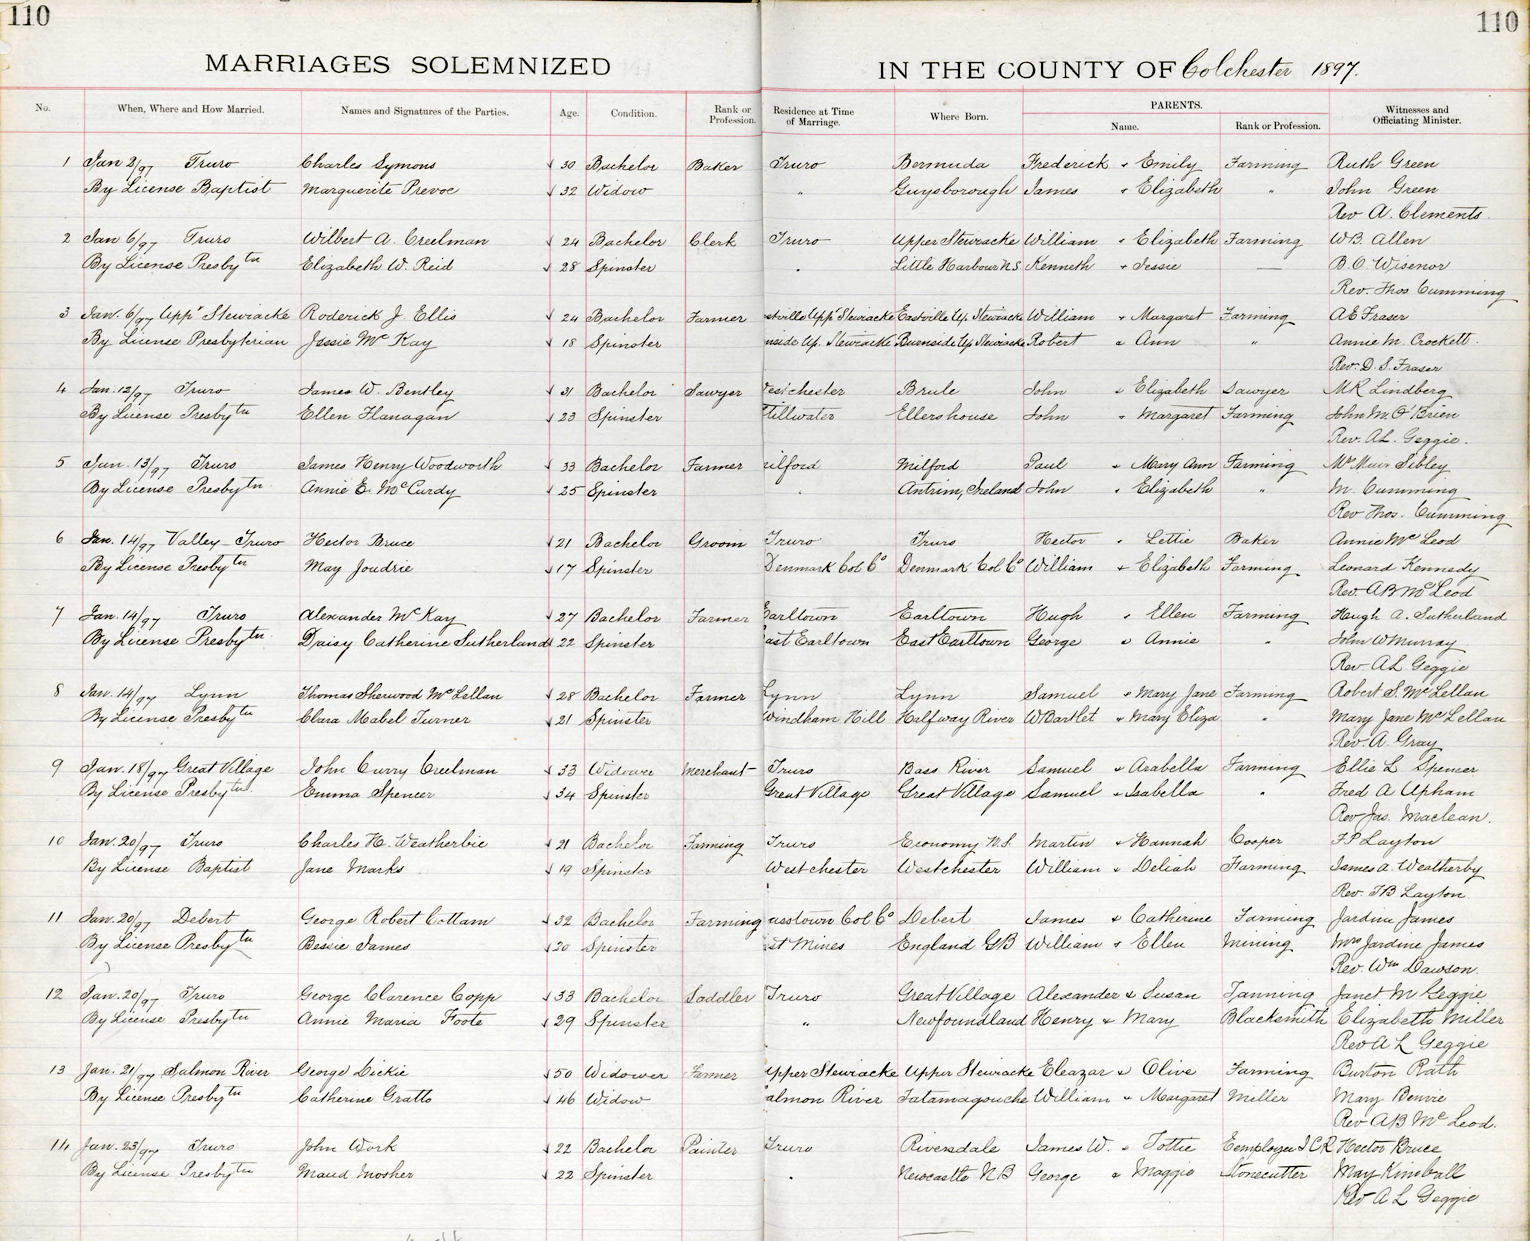 110 110
MARRIAGES SOLEMNIZED IN THE COUNTY OF Colchester 1897.
No. When, Where and How Married. Names and Signatures of the Parties. Age. Condition. Rank or Profession. Residence at Time of Marriage. Where Born. PARENTS. Name. Rank or Profession. Witnesses and Officiating Minister.
1 Jan 2/97 Truro Charles Symons 30 Bachelor Baker Truro Bermuda Frederick & Emily Farming Ruth Green
By License Baptist Marguerite Prevoe 32 Widow " Guysborough James & Elizabeth " John Green
Rev A. Clements.
2 Jan 6/97 Truro Wilbert A. Creelman 24 Bachelor Clerk Truro Upper Stewiacke William & Elizabeth Farming W.B. Allen
By License Presbytn Elizabeth W. Reid 28 Spinster " Little Harbour N.S. Kenneth & Jessie — B.C. Wisenor
Rev. Thos Cumming
3 Jan. 6/97 Uppr Stewiacke Roderick J Ellis 24 Bachelor Farmer stville Uppr Stewiacke Eastville Up. Stewiacke William & Margaret Farming A E Fraser
By License Presbyterian Jessie Mc Kay 18 Spinster nside Up. Stewiacke Burnside Up Stewiacke Robert & Ann " Annie M. Crockett.
Rev. D. S. Fraser
4 Jan. 12/97 Truro James W. Bentley 31 Bachelor Sawyer estchester Brule John & Elizabeth Sawyer M R Lindberg
By License Presbytn Ellen Flanagan 23 Spinster Stillwater Ellershouse John & Margaret Farming John M. O'Brien
Rev. A L. Geggie.
5 Jan. 13/97 Truro James Henry Woodworth 33 Bachelor Farmer ilford Milford Paul & Mary Ann Farming Mr Muir Sibley
By License Presbytn. Annie E. McCurdy 25 Spinster " Antrim, Ireland John & Elizabeth " M. Cumming
Rev Thos. Cumming
6 Jan. 14/97 Valley - Truro Hector Bruce 21 Bachelor Groom Truro Truro Hector & Lettie Baker Annie Mc Leod
By License Presbytn May Joudrie 17 Spinster Denmark Col Co Denmark Col Co William & Elizabeth Farming Leonard Kennedy
Rev A B McLeod
7 Jan. 14/97 Truro Alexander McKay 27 Bachelor Farmer Earltown Earltown Hugh & Ellen Farming Hugh A. Sutherland
By License Presbytn. Daisy Catherine Sutherland 22 Spinster ast Earltown East Earltown George & Annie " John W Murray
Rev A L Geggie
8 Jan. 14/97 Lynn Thomas Sherwood McLellan 28 Bachelor Farmer Lynn Lynn Samuel & Mary Jane Farming Robert S. McLellan
By License Presbytn Clara Mabel Turner 21 Spinster Windham Hill Halfway River W Bartlet & Mary Eliza " Mary Jane McLellan
Rev A. Gray
9 Jan. 18/97 Great Village John Curry Creelman 33 Widower Merchant Truro Bass River Samuel & Arabella Farming Ellie L Spencer
By License Presbytn. Emma Spencer 34 Spinster Great Village Great Village Samuel & Isabella " Fred A Upham
Rev Jas. Maclean.
10 Jan. 20/97 Truro Charles H. Weatherbie 21 Bachelor Farming Truro Economy N.S. Martin & Hannah Cooper F P Layton
By License Baptist Jane Marks 19 Spinster Westchester Westchester William & Deliah Farming James A. Weatherby
Rev. F B Layton.
11 Jan. 20/97 Debert George Robert Cottam 32 Bachelor Farming asstown Col Co Debert James & Catherine Farming Jardine James
By License Presbytn Bessie James 20 Spinster st Mines England G B William & Ellen Mining Mrs Jardine James
Rev Wm Dawson.
12 Jan. 20/97 Truro George Clarence Copp 33 Bachelor Saddler Truro Great Village Alexander & Susan Tanning Janet M Geggie
By License Presbytn Annie Maria Foote 29 Spinster " Newfoundland Henry & Mary Blacksmith Elizabeth Miller
Rev A L Geggie
13 Jan. 21/97 Salmon River George Dickie 50 Widower Farmer Upper Stewiacke Upper Stewiacke Eleazar & Olive Farming Burton Rath
By License Presbytn Catherine Gratto 46 Widow almon River Tatamagouche William & Margaret Miller Mary Benvie
Rev A B Mc Leod.
14 Jan. 23/97 Truro John Work 22 Bachelor Painter Truro Riversdale James W. & Tottie Employee I C R Hector Bruce
By License Presbytn Maud Mosher 22 Spinster " Newcastle N B George & Maggie Stonecutter May Kimball
Rev A L Geggie